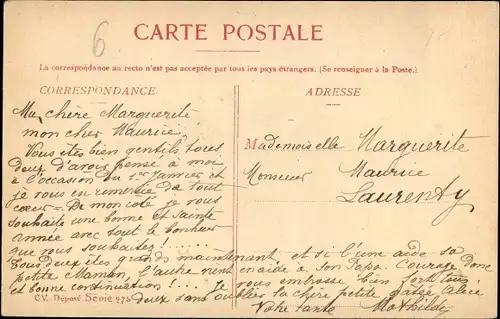 6
CARTE POSTALE
La correspondance au recto n'est pas acceptée par tous les pays étrangers. (Se renseigner à la Poste.)
CORRESPONDANCE
Ma chère Marguerite
mon cher Maurice,
Vous êtes bien gentils tous
deux d'avoir pensé à moi
à l'occasion du 1er Janvier et
je vous en remercie de tout
cœur – De mon côté je vous
souhaite une bonne et sainte
année avec tout le bonheur
que vous souhaitez! .....
Tous deux êtes grands maintenant, et si l'une aide sa
petite Maman, l'autre vient en aide à son Papa. Courage donc
et bonne continuation! ... Je vous embrasse bien fort tous
deux sans oublier la chère petite
Votre tante Mathilde
C.V. Déposé. Série 275
ADRESSE
Mademoiselle Marguerite
Monsieur Maurice
Laurenty